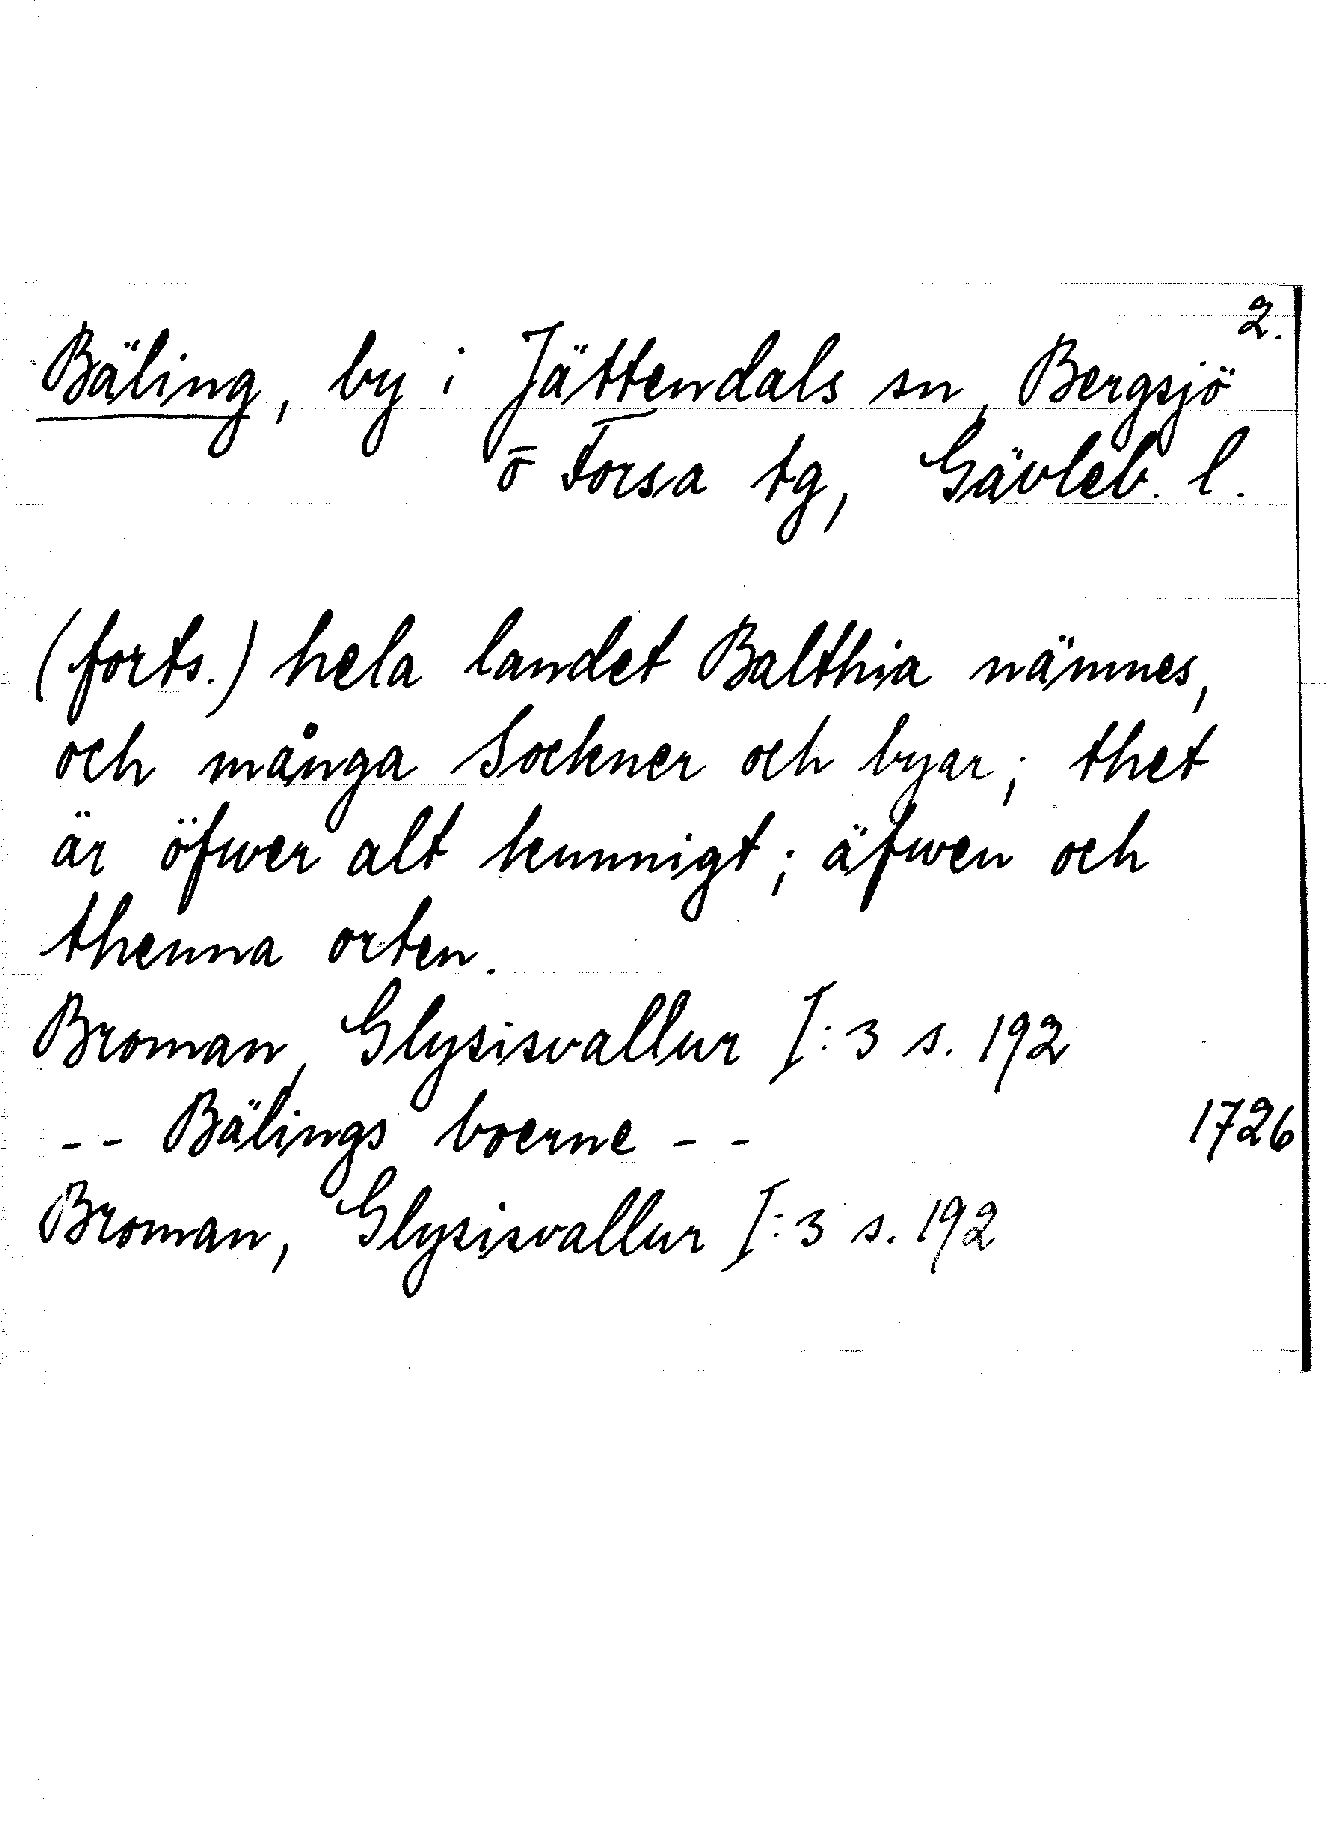 2.
Bäling, by i Jättendals sn, Bergsjö
o Forsa tg, Gävleb. l.
(forts.) hela landet Balthia nämnes,
och många Sockner och byar; thet
är öfwer alt kunnigt; äfwen och
thenna orten.
Broman, Glysisvallur I:3 s. 192
-- Bälings boerne -- 1726
Broman, Glysisvallur I:3 s. 192